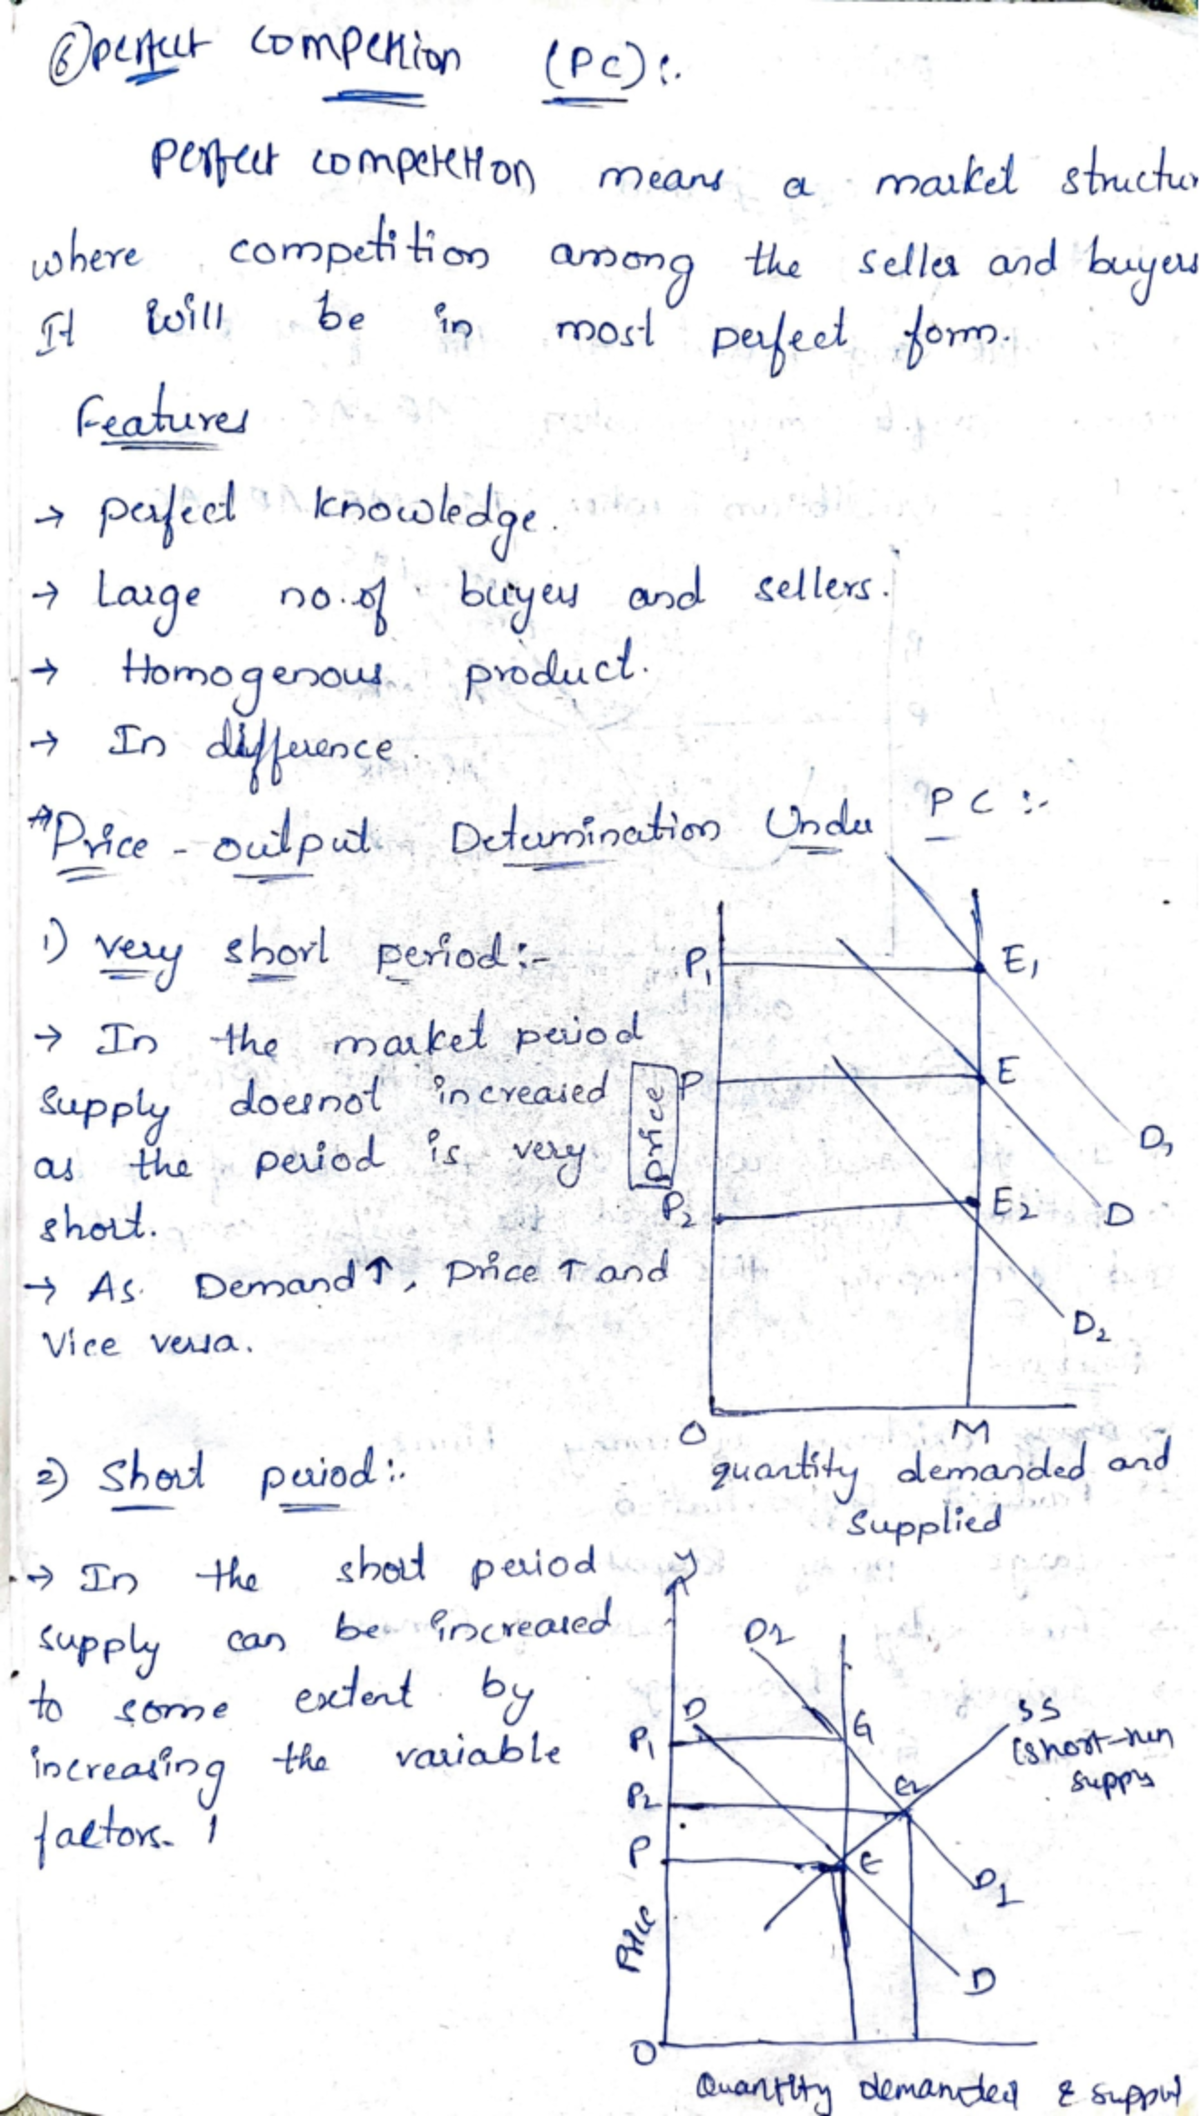 ⑥ perfect compettion (PC):.
perfect competetion means a market structur
where competition among the seller and buyers
It will be in most perfect form.
Features
→ perfect knowledge.
→ Large no.of buyers and sellers.
→ Homogenous product.
→ In difference.
*Price - output Determination Under PC :-
1) very short period:-
→ In the market period
supply doesnot increased
as the period is very
short.
→ As Demand↑, price ↑ and
Vice versa.
P1
E1
P
E
price
D1
P2
E2
D
D2
O
M
quantity demanded and
supplied
2) Short period:.
→ In the short period
supply can be increased
to some extent by
increasing the variable
factors.
y
D1
D
SS
(short-run
suppy
P1
G
P2
E2
P
E
D1
Price
D
O
Quantity demanded & suppl